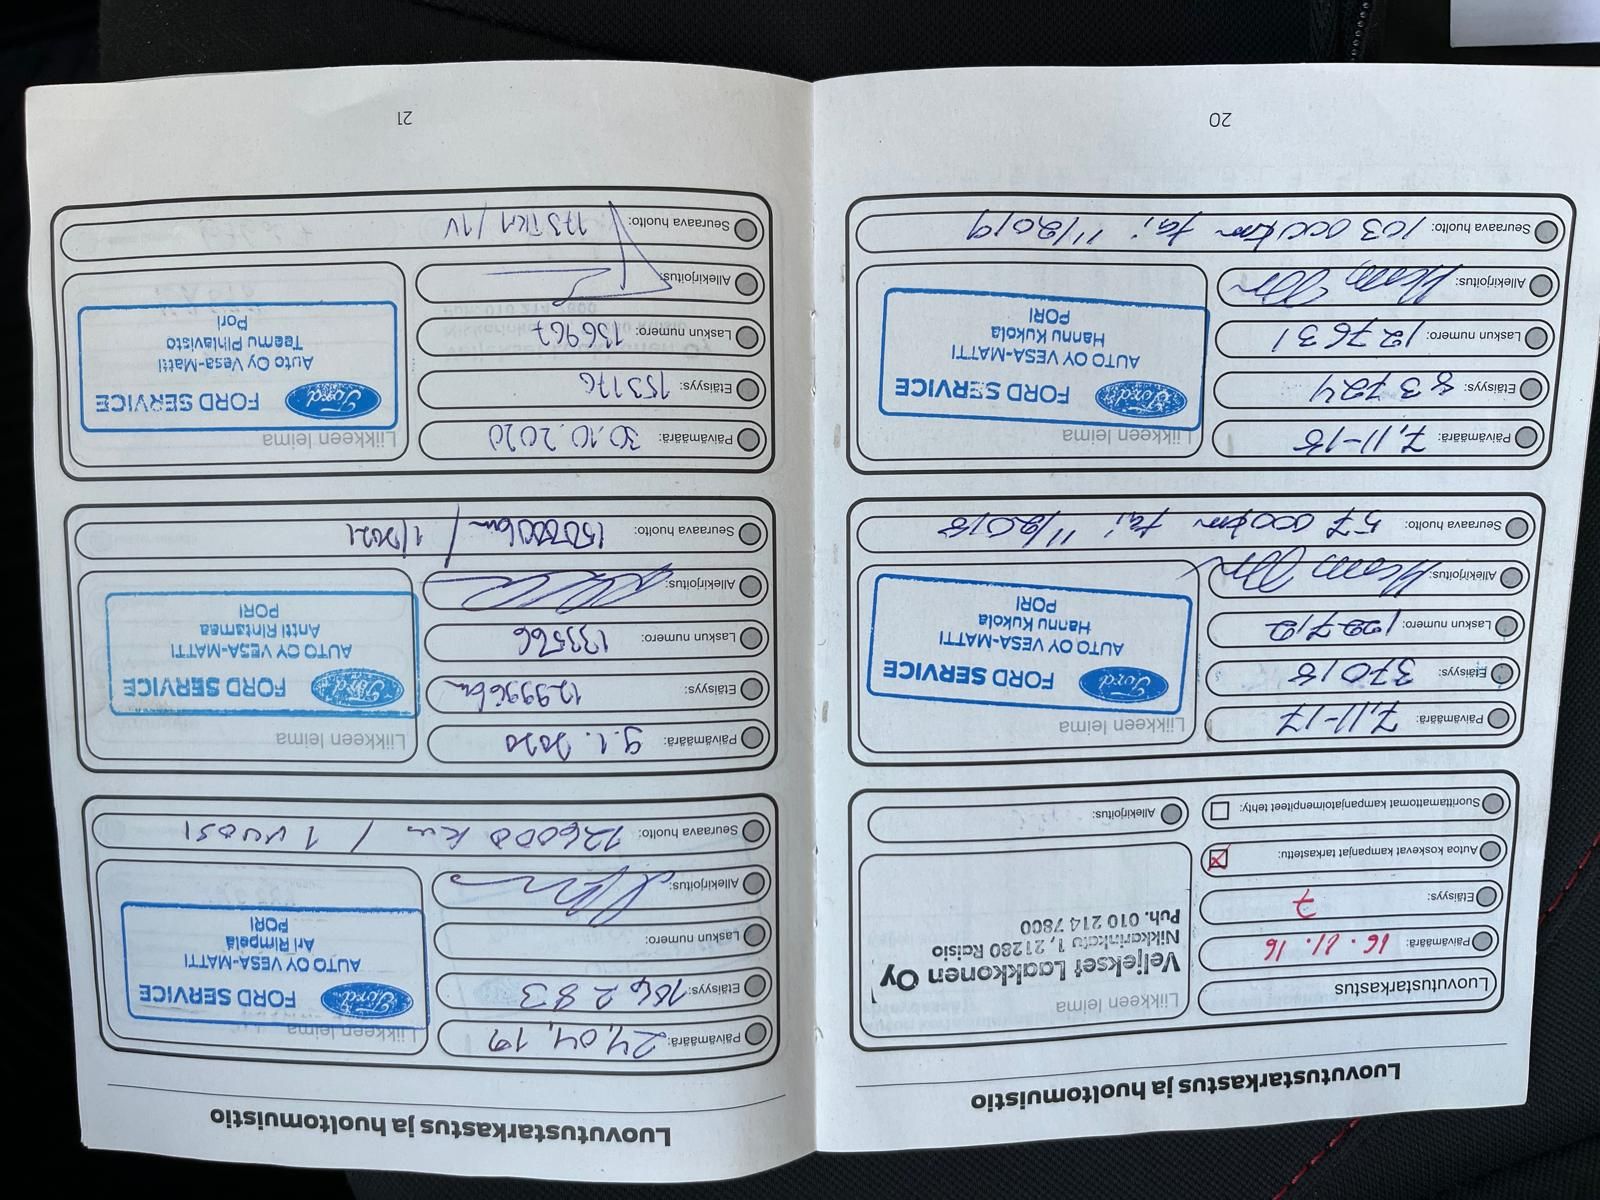 Luovutustarkastus ja huoltomuistio
Luovutustarkastus
Päivämäärä: 16.11.16
Etäisyys: 7
Autoa koskevat kampanjat tarkastettu: ☒
Suorittamattomat kampanjatoimenpiteet tehty: ☐
Liikkeen leima
Veljekset Laakkonen Oy
Nikkarinkatu 1, 21280 Raisio
Puh. 010 214 7800
Allekirjoitus:
Päivämäärä: 7.11-17
Etäisyys: 37018
Laskun numero: 122712
Allekirjoitus:
Seuraava huolto: 57 000 km tai 11/2018
Liikkeen leima
Ford FORD SERVICE
AUTO OY VESA-MATTI
Hannu Kukola
PORI
Päivämäärä: 7.11-18
Etäisyys: 83724
Laskun numero: 127631
Allekirjoitus:
Seuraava huolto: 103 000 km tai 11/2019
Liikkeen leima
Ford FORD SERVICE
AUTO OY VESA-MATTI
Hannu Kukola
PORI
20
Luovutustarkastus ja huoltomuistio
Päivämäärä: 24.04.19
Etäisyys: 106283
Laskun numero:
Allekirjoitus:
Seuraava huolto: 126000 km / 1 VUOSI
Liikkeen leima
Ford FORD SERVICE
AUTO OY VESA-MATTI
Ari Rimpelä
PORI
Päivämäärä: 9.1.2020
Etäisyys: 129996 km
Laskun numero: 133566
Allekirjoitus:
Seuraava huolto: 150000 km / 1/2021
Liikkeen leima
Ford FORD SERVICE
AUTO OY VESA-MATTI
Antti Rintamaa
PORI
Päivämäärä: 30.10.2020
Etäisyys: 153176
Laskun numero: 136967
Allekirjoitus:
Seuraava huolto: 173TKM / 1V
Liikkeen leima
Ford FORD SERVICE
Auto Oy Vesa-Matti
Teemu Pihlavisto
Pori
21